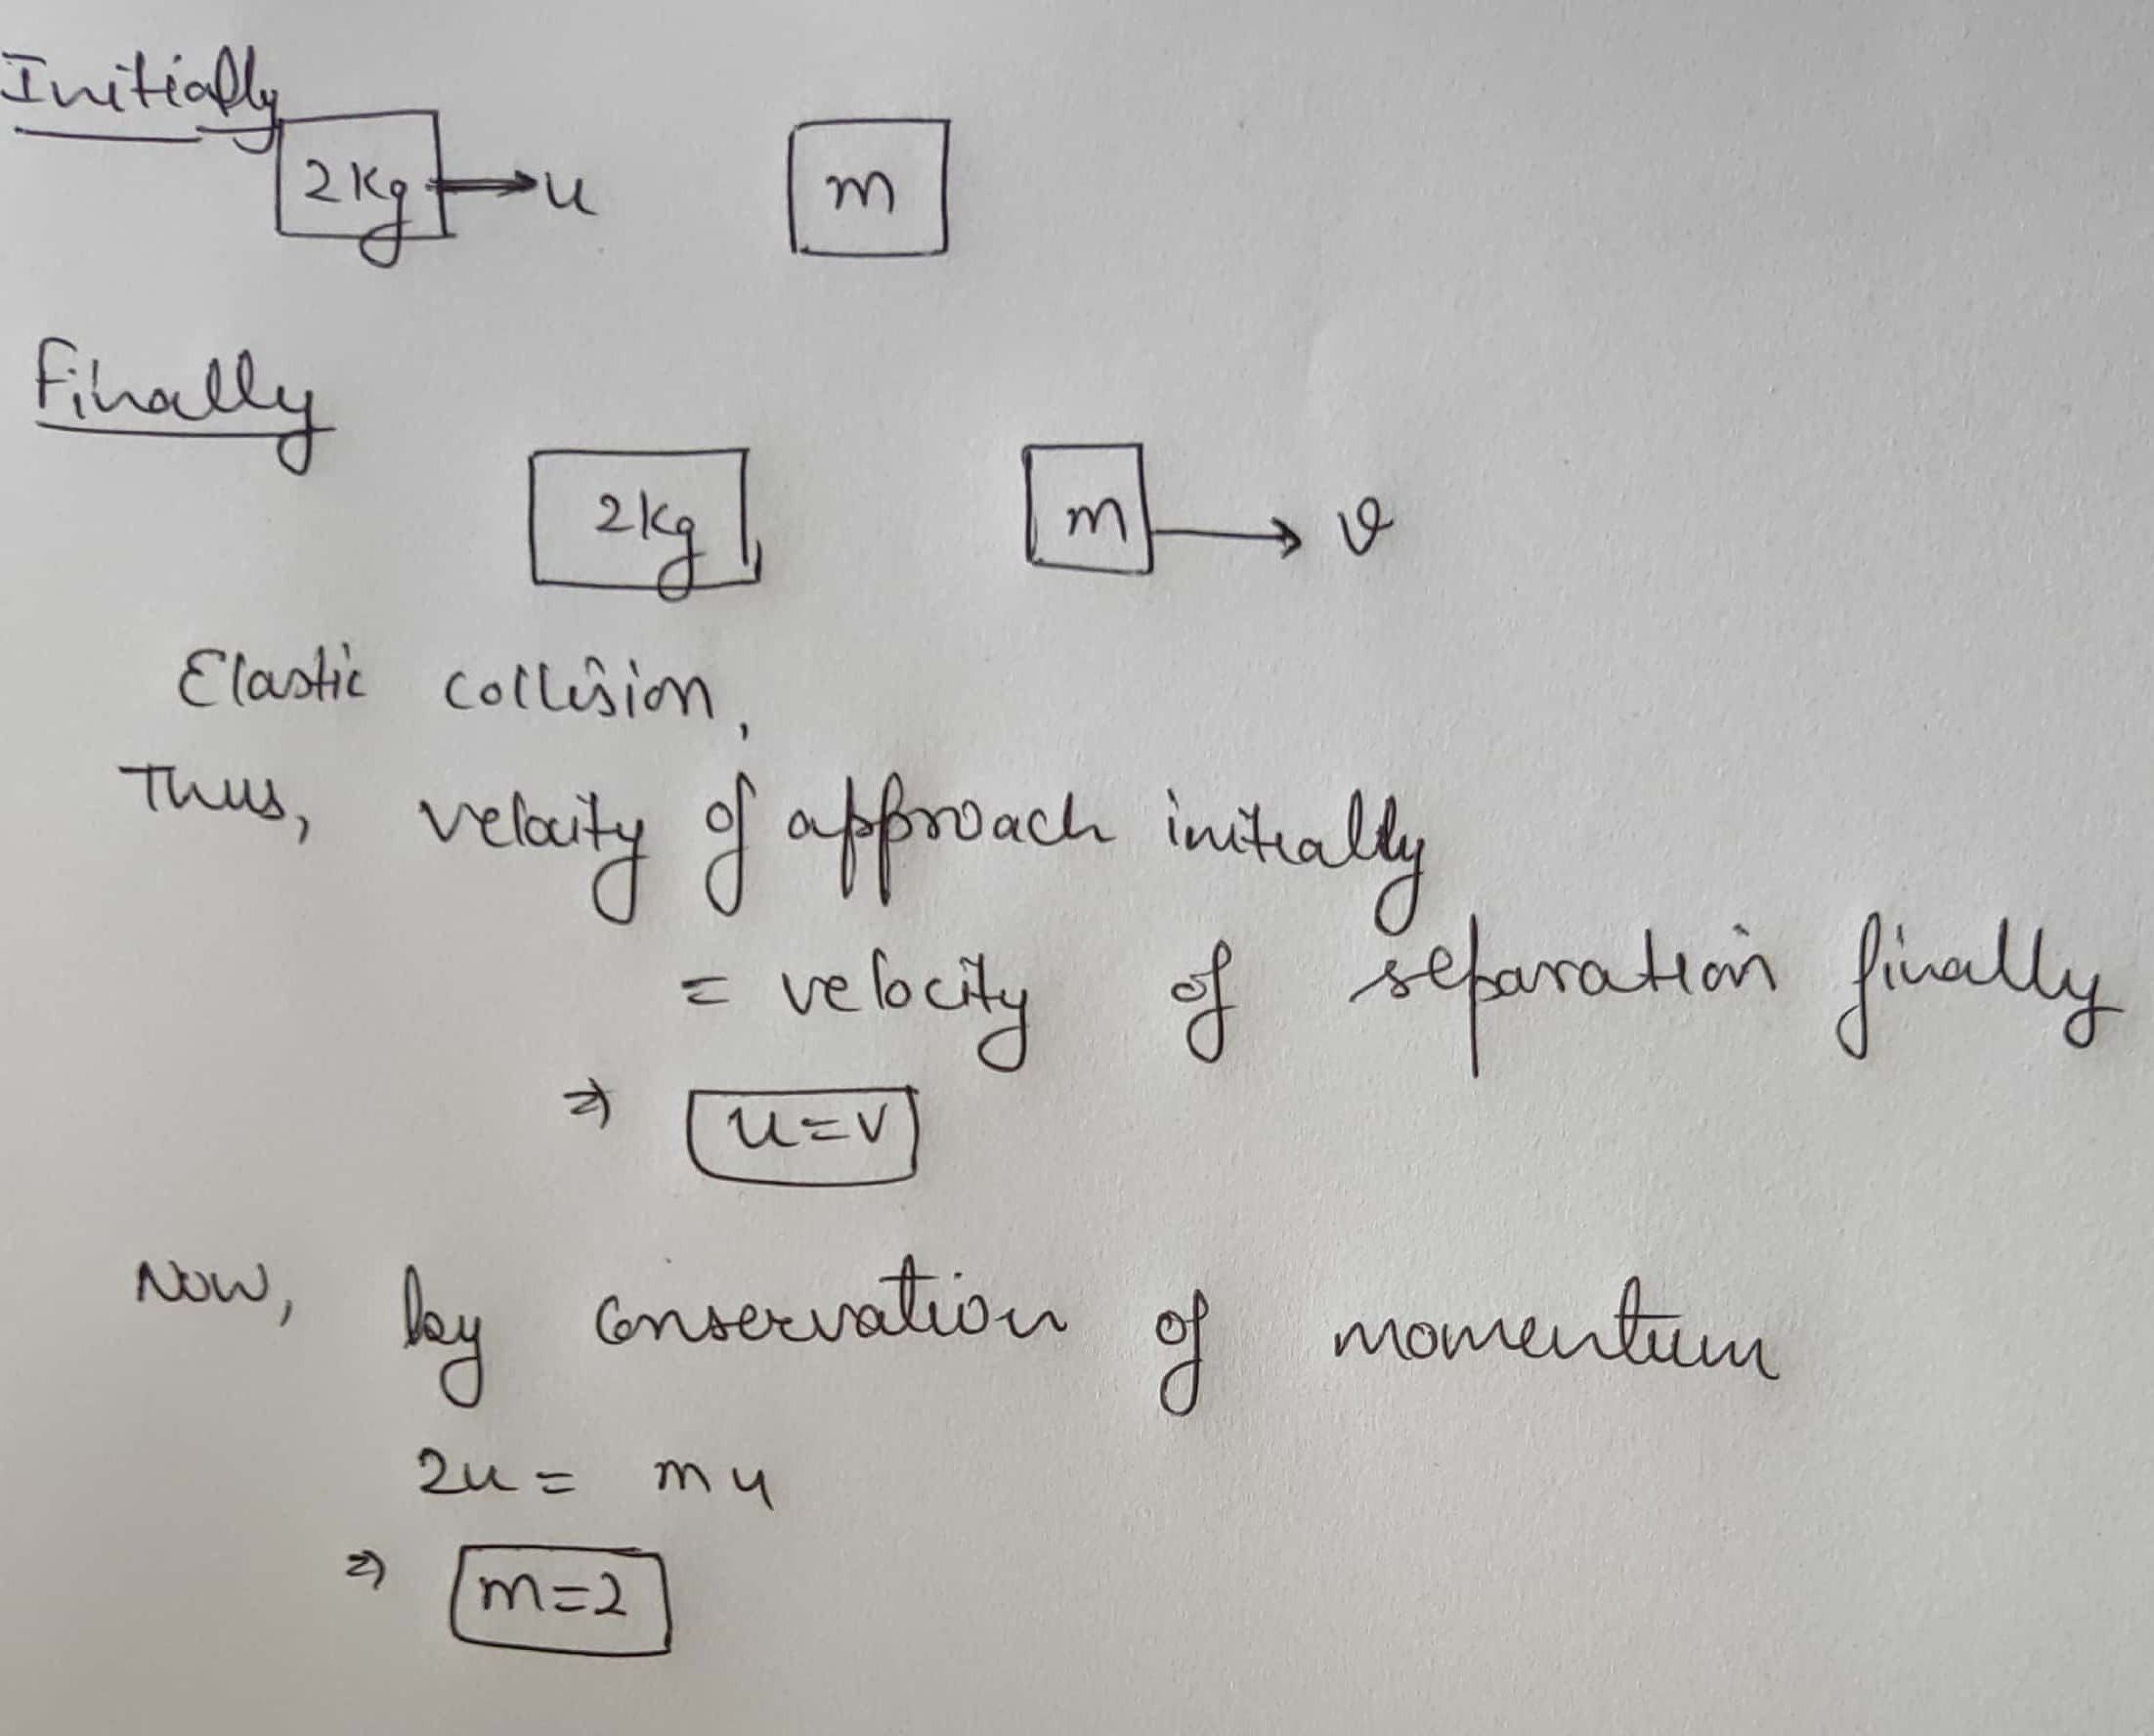 Initially
2kg → u m
Finally
2kg m → v
Elastic collision,
Thus, velocity of approach initially
= velocity of separation finally
⇒ u=v
Now, by conservation of momentum
2u = mu
⇒ m=2